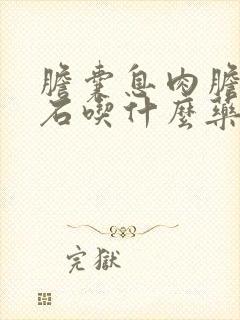 膽囊息肉膽
石喫什麼藥
完獄